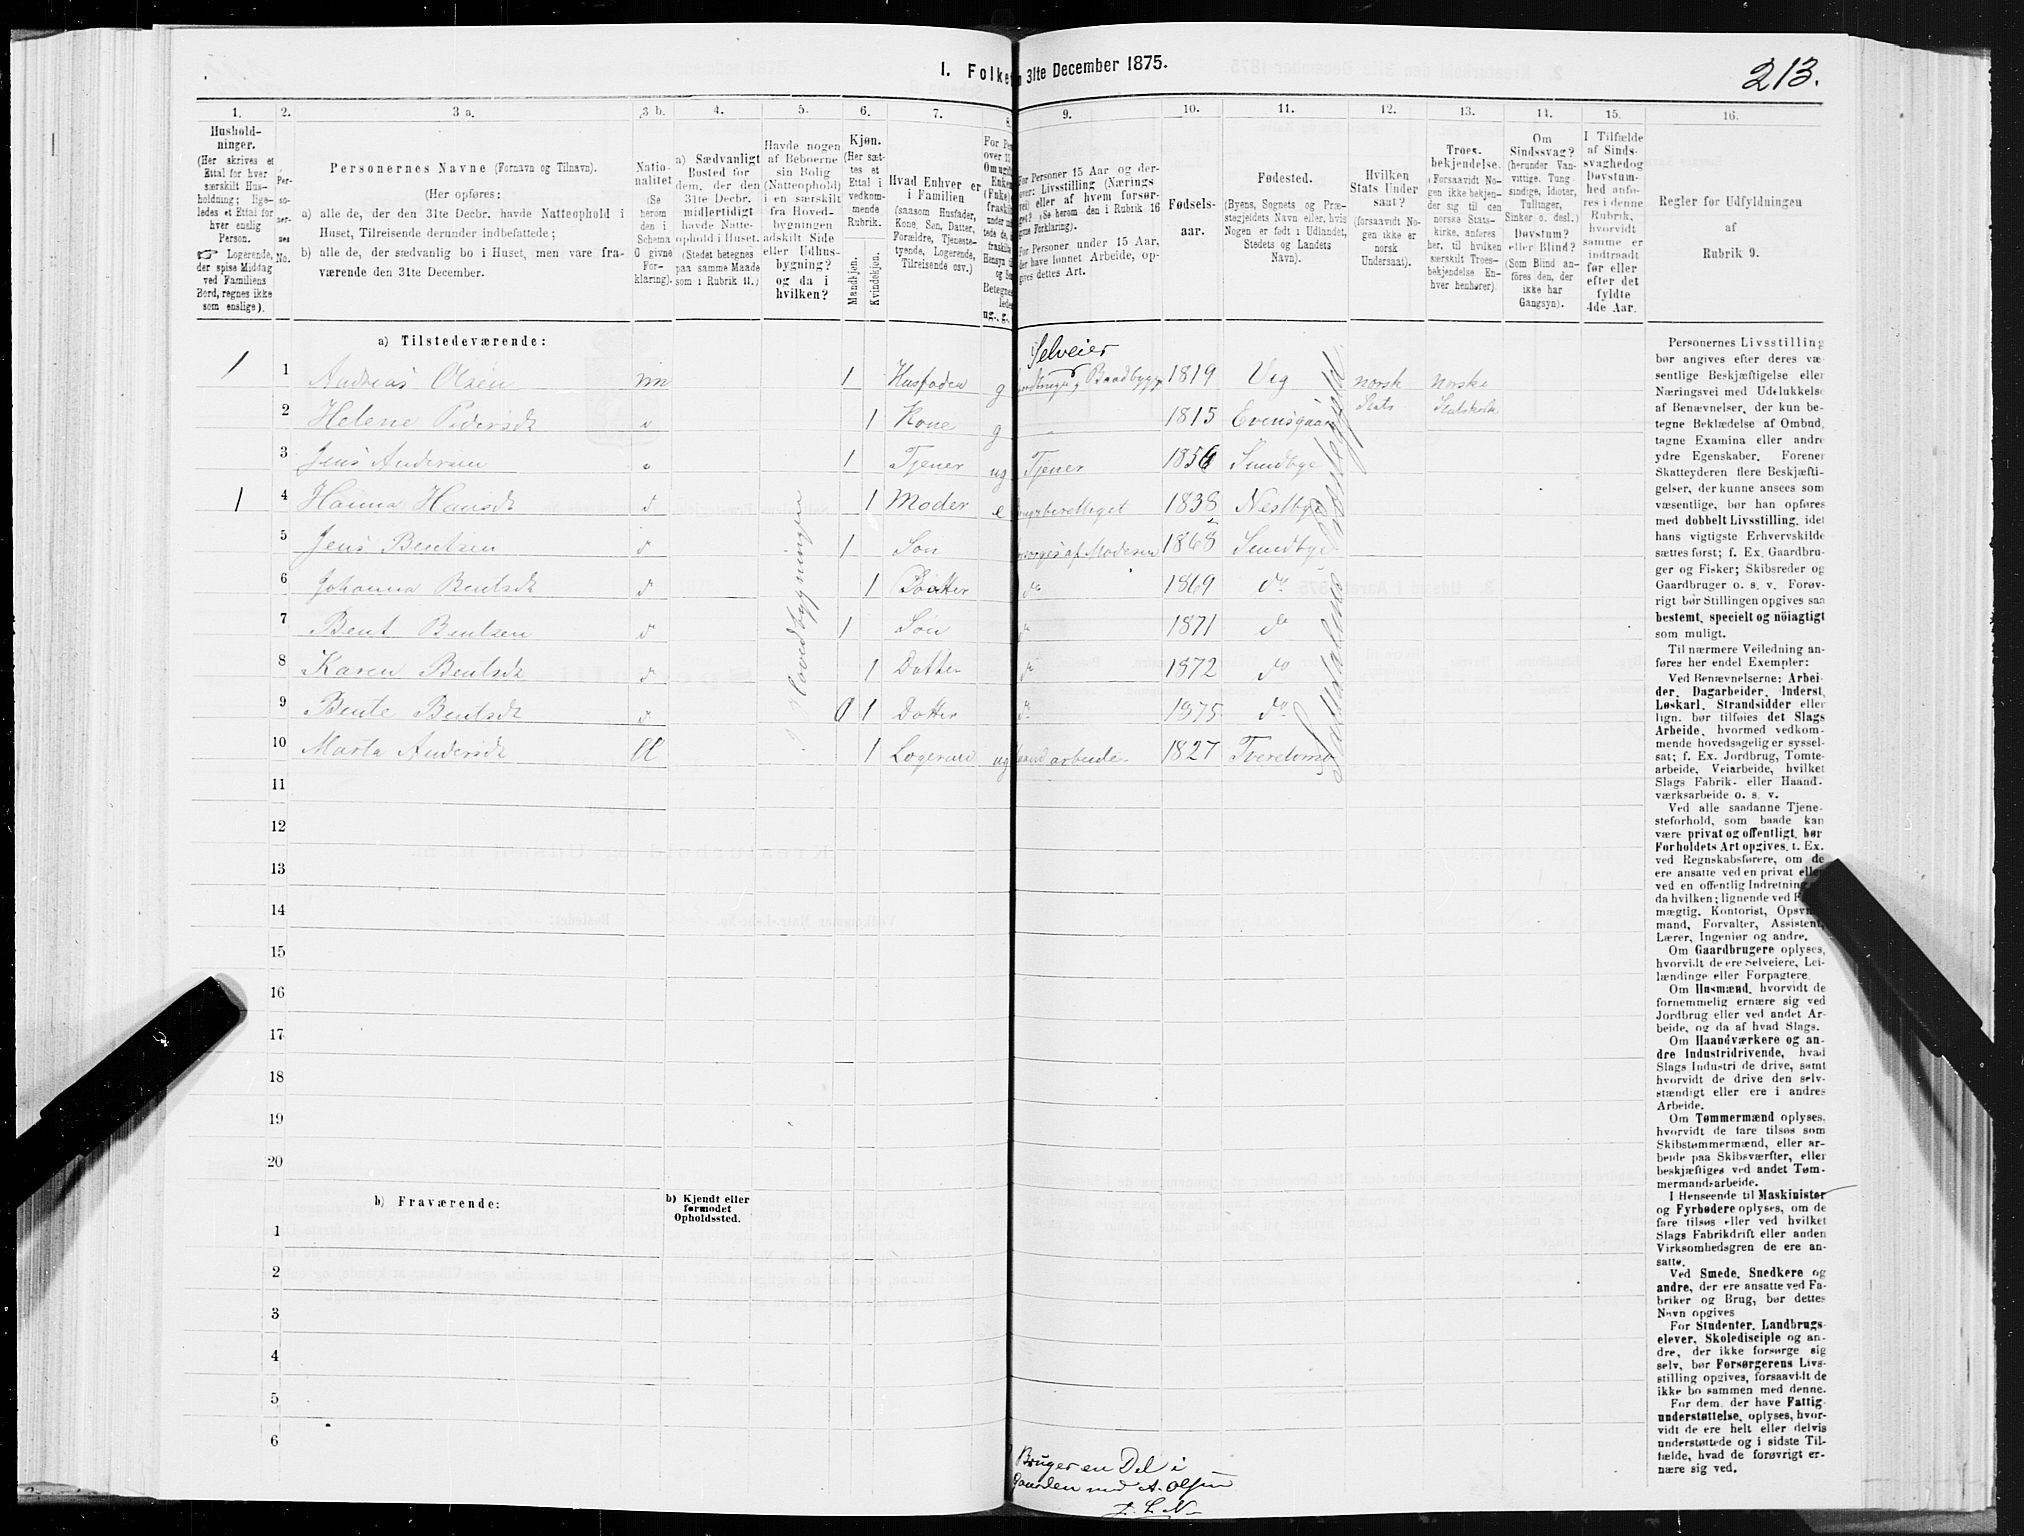 I. Folke n 31te December 1875.
213.
1.
2.
3 a.
3 b.
4.
5.
6.
7.
8
9.
10.
11.
12.
13.
14.
15.
16.
Hushold-
ninger.
(Her skrives et
Ettal for hver
særskilt Hus-
holdning; lige-
ledes et Ettal for
hver enslig
Person.
☞ Logerende,
der spise Middag
ved Familiens
Bord, regnes ikke
som enslige).
Per-
so-
ner-
nes
No.
Personernes Navne (Fornavn og Tilnavn).
(Her opføres:
a) alle de, der den 31te Decbr. havde Natteophold i
Huset, Tilreisende derunder indbefattede;
b) alle de, der sædvanlig bo i Huset, men vare fra-
værende den 31te December.
Natio-
nalitet
(Se
herom
den i
Schema
O givne
For-
klaring).
a) Sædvanligt
Bosted for
dem, der den
31te Decbr.
midlertidigt
havde Natte-
ophold i Huset.
(Stedet betegnes
paa samme Maade
som i Rubrik 11.)
Havde nogen
af Beboerne
sin Bolig
(Natteophold)
i en særskilt
fra Hoved-
bygningen
adskilt Side
eller Udhus-
bygning?
og da i
hvilken?
Kjøn.
(Her sæt-
tes et
Ettal i
vedkom-
mende
Rubrik.
Mandkjøn.
Kvindekjøn.
Hvad Enhver er
i Familien
(saasom Husfader,
Kone, Søn, Datter,
Forældre, Tjeneste-
tyende, Logerende,
Tilreisende osv.)
For Personer 15 Aar og der-
over: Livsstilling (Nærings
vei) eller af hvem forsør-
get? (Se herom den i Rubrik 16
givne Forklaring).
For Personer under 15 Aar,
der have lønnet Arbeide, op-
gives dettes Art.
Fødsels-
aar.
Fødested.
(Byens, Sognets og Præ-
stegjeldets Navn eller, hvis
Nogen er født i Udlandet,
Stedets og Landets
Navn).
Hvilken
Stats Under
saat?
(forsaavidt No-
gen ikke er
norsk
Undersaat).
Troes-
bekjendelse.
(Forsaavidt No-
gen ikke bekjen-
der sig til den
norske Stats-
kirke, anføres
her, til hvilken
særskilt Troes-
bekjendelse En-
hver henhører).
Om
Sindssvag?
(herunder Van-
vittige, Tung-
sindige, Idioter,
Tullinger,
Sinker o. desl.)
Døvstum?
eller Blind?
(Som Blind an-
føres den, der
ikke har
Gangsyn).
I Tilfælde
af Sinds-
svaghed og
Døvstum-
hed anfø-
res i denne
Rubrik,
hvorvidt
samme er
indtraadt
før eller
efter det
fyldte
4de Aar.
Regler for Udfyldningen
af
Rubrik 9.
a) Tilstedeværende:
Selveier
1 1 Andreas Olsen nn 1 Husfader g Baadbygg 1819 norsk norske
Stats Statskirke
2 Helene Pedersdt 1 Kone g 1815 Evensgaard
3 Jens Andersen 1 Tjener ug Tjener Sundbye
1 4 Hanna Hansdt d 1 Moder e 1838 Nestbye
5 Jens Bentsen d 1 Søn forsørges af Moderen 1868 Sundbye
6 Johanna Bentsdt d 1 Datter do 1869 do
7 Bent Bentsen d 1 Søn d 1871 do
8 Karen Bentsdt d 1 Datter d 1872 do
9 Bente Bentsdt d 0 1 Datter d 1875 do
10 Marta Andersdt 1 Logerend ug Haandarbeide 1827
I Hovedbygningen
11
12
13
14
15
16
17
18
19
20
b) Fraværende:
b) Kjendt eller
formodet
Opholdssted.
1
2
3
4
5
6
Bruger en Del i
Gaarden med A. Olsen
Personernes Livsstilling
bør angives efter deres væ-
sentlige Beskjæftigelse eller
Næringsvei med Udelukkelse
af Benævnelser, der kun be-
tegne Beklædelse af Ombud,
tagne Examina eller andre
ydre Egenskaber. Forener
Skatteyderen flere Beskjæfti-
gelser, der kunne ansees som
væsentlige, bør han opføres
med dobbelt Livsstilling, idet
hans vigtigste Erhvervskilde
sættes først; f. Ex. Gaardbru-
ger og Fisker; Skibsreder og
Gaardbruger o. s. v. Forøv-
rigt bør Stillingen opgives saa
bestemt, specielt og nöiagtigt
som muligt.
Til nærmere Veiledning an-
føres her endel Exempler:
Ved Benævnelserne: Arbei-
der, Dagarbeider, Inderst,
Løskarl, Strandsidder eller
lign. bør tilføies det Slags
Arbeide, hvormed vedkom-
mende hovedsagelig er syssel-
sat; f. Ex. Jordbrug, Tømte-
arbeide, Veiarbeide, hvilket
Slags Fabrik- eller Haand-
værksarbeide o. s. v.
Ved alle saadanne Tjene-
steforhold, som baade kan
være privat og offentligt, bør
Forholdets Art opgives, t. Ex.
ved Regnskabsførere, om de
ere ansatte ved en privat eller
ved en offentlig Indretning
da hvilken; lignende ved F
mægtig, Kontorist, Opsyns
mand, Forvalter, Assistent,
Lærer, Ingeniør og andre.
Om Gaardbrugere oplyses,
hvorvidt de ere Selveiere, Lei-
lændinge eller Forpagtere.
Om Husmænd, hvorvidt de
fornemmelig ernære sig ved
Jordbrug eller ved andet Ar-
beide, og da af hvad Slags.
Om Haandværkere og an-
dre Industridrivende, hvad
Slags Industri de drive, samt
hvorvidt de drive den selv-
stændigt eller ere i andres
Arbeide.
Om Tømmermænd oplyses,
hvorvidt de fare tilsøs som
Skibstømmermænd, eller ar-
beide paa Skibsværfter, eller
beskjæftiges ved andet Tøm-
mermandsarbeide.
I Henseende til Maskinister
og Fyrbødere oplyses, om de
fare tilsøs eller ved hvilket
Slags Fabrikdrift eller anden
Virksomhedsgren de ere an-
satte.
Ved Smede, Snedkere og
andre, der ere ansatte ved Fa-
briker og Brug, bør dettes
Navn opgives
For Studenter, Landbrugs-
elever, Skoledisciple og an-
dre, der ikke forsørge sig
selv, bør Forsørgerens Livs-
stilling opgives, forsaavidt de
ikke bo sammen med denne.
For dem, der have Fattig-
understøttelse, oplyses, hvor-
vidt de ere helt eller delvis
understøttede og i sidste Til-
fælde, hvad de forøvrigt er-
nære sig ved.